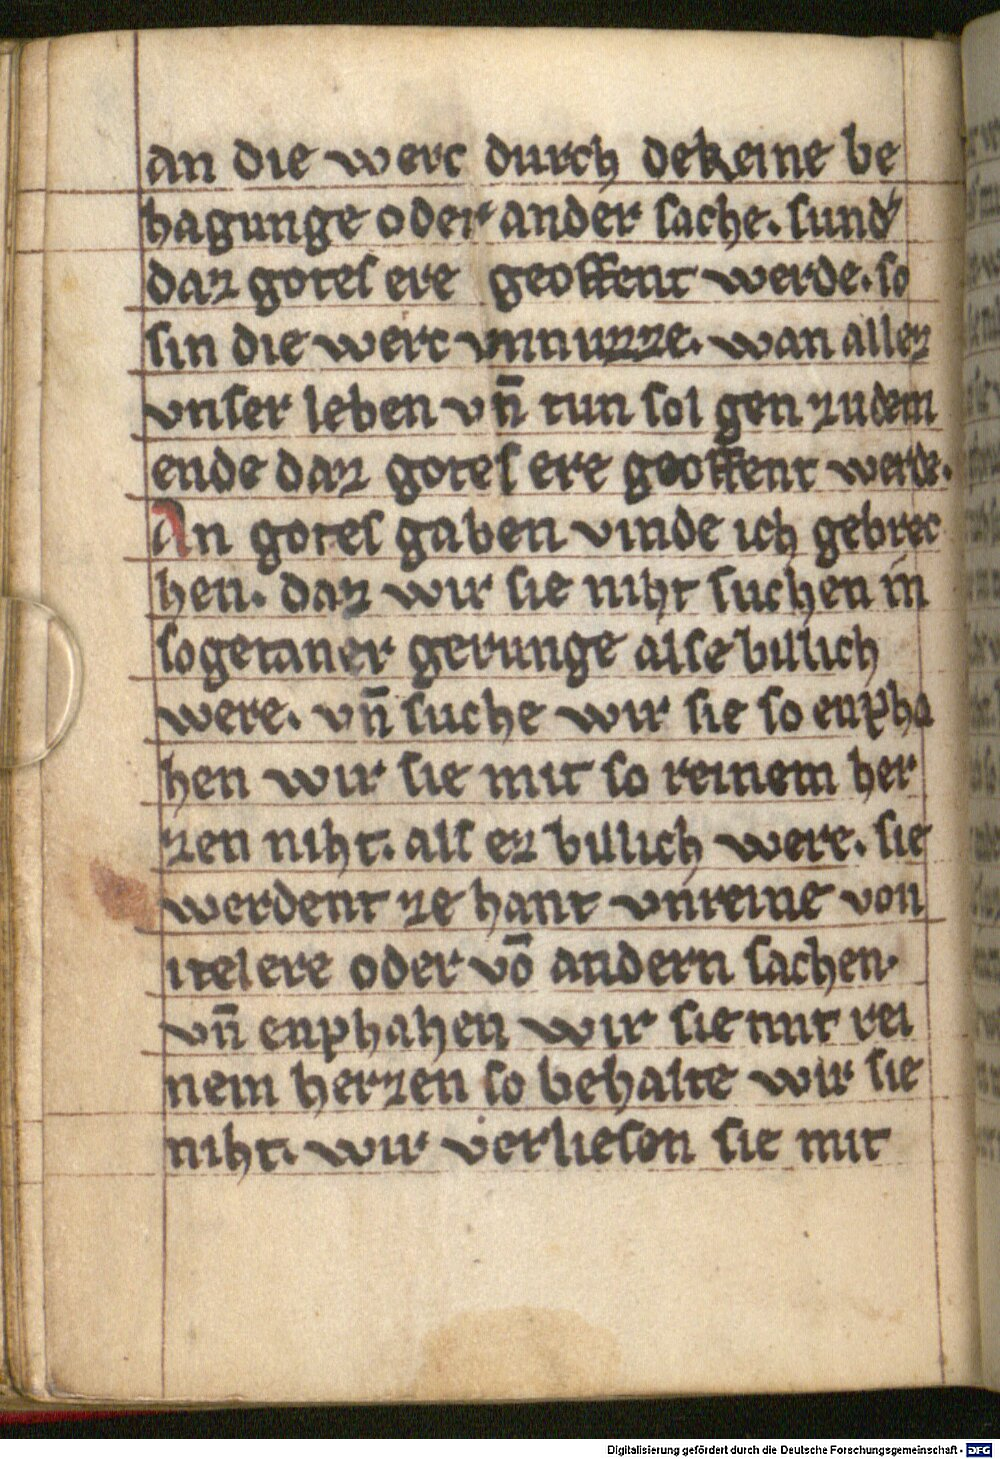 an die werc durch dekeine be
hagunge oder ander sache. sund'
daz gotes ere geoffent werde. so
sin die werc vnnuzze. wan allez
vnser leben vn̄ tun sol gen zu dem
ende daz gotes ere geoffent werde.
An gotes gaben vinde ich gebrec
hen. daz wir sie niht suchen in
sogetaner gerunge alse billich
were. vn̄ suche wir sie so enpha
hen wir sie mit so reinem her
zen niht. als ez billich were. sie
werdent ze hant vnreine von
itel ere oder vō andern sachen.
vn̄ enphahen wir sie mit rei
nem herzen so behalte wir sie
niht. wir verliesen sie mit
Digitalisierung gefördert durch die Deutsche Forschungsgemeinschaft - DFG